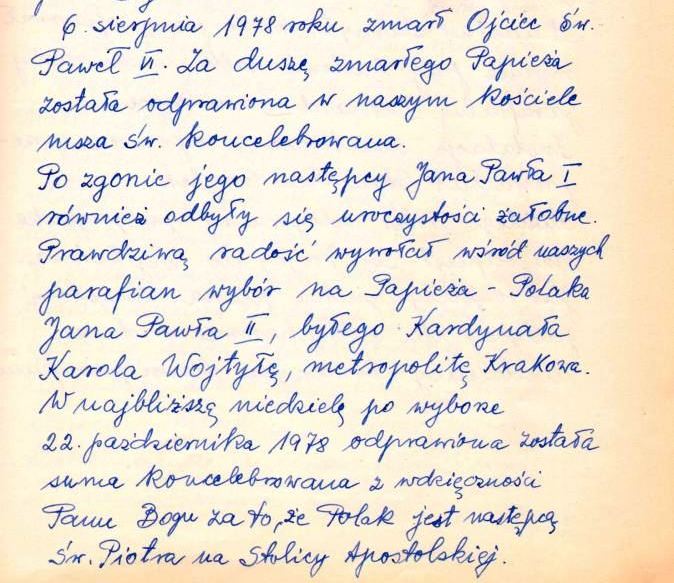 6. sierpnia 1978 roku zmarł Ojciec Św.
Paweł VI. Za duszę zmarłego Papieża
została odprawiona w naszym kościele
msza św. koncelebrowana.
Po zgonie jego następcy Jana Pawła I
również odbyły się uroczystości żałobne.
Prawdziwą radość wywołał wśród naszych
parafian wybór na Papieża - Polaka
Jana Pawła II, byłego Kardynała
Karola Wojtyłę, metropolitę Krakowa.
W najbliższą niedzielę po wyborze
22. października 1978 odprawiona została
suma koncelebrowana z wdzięczności
Panu Bogu za to, że Polak jest następcą
Św. Piotra na Stolicy Apostolskiej.